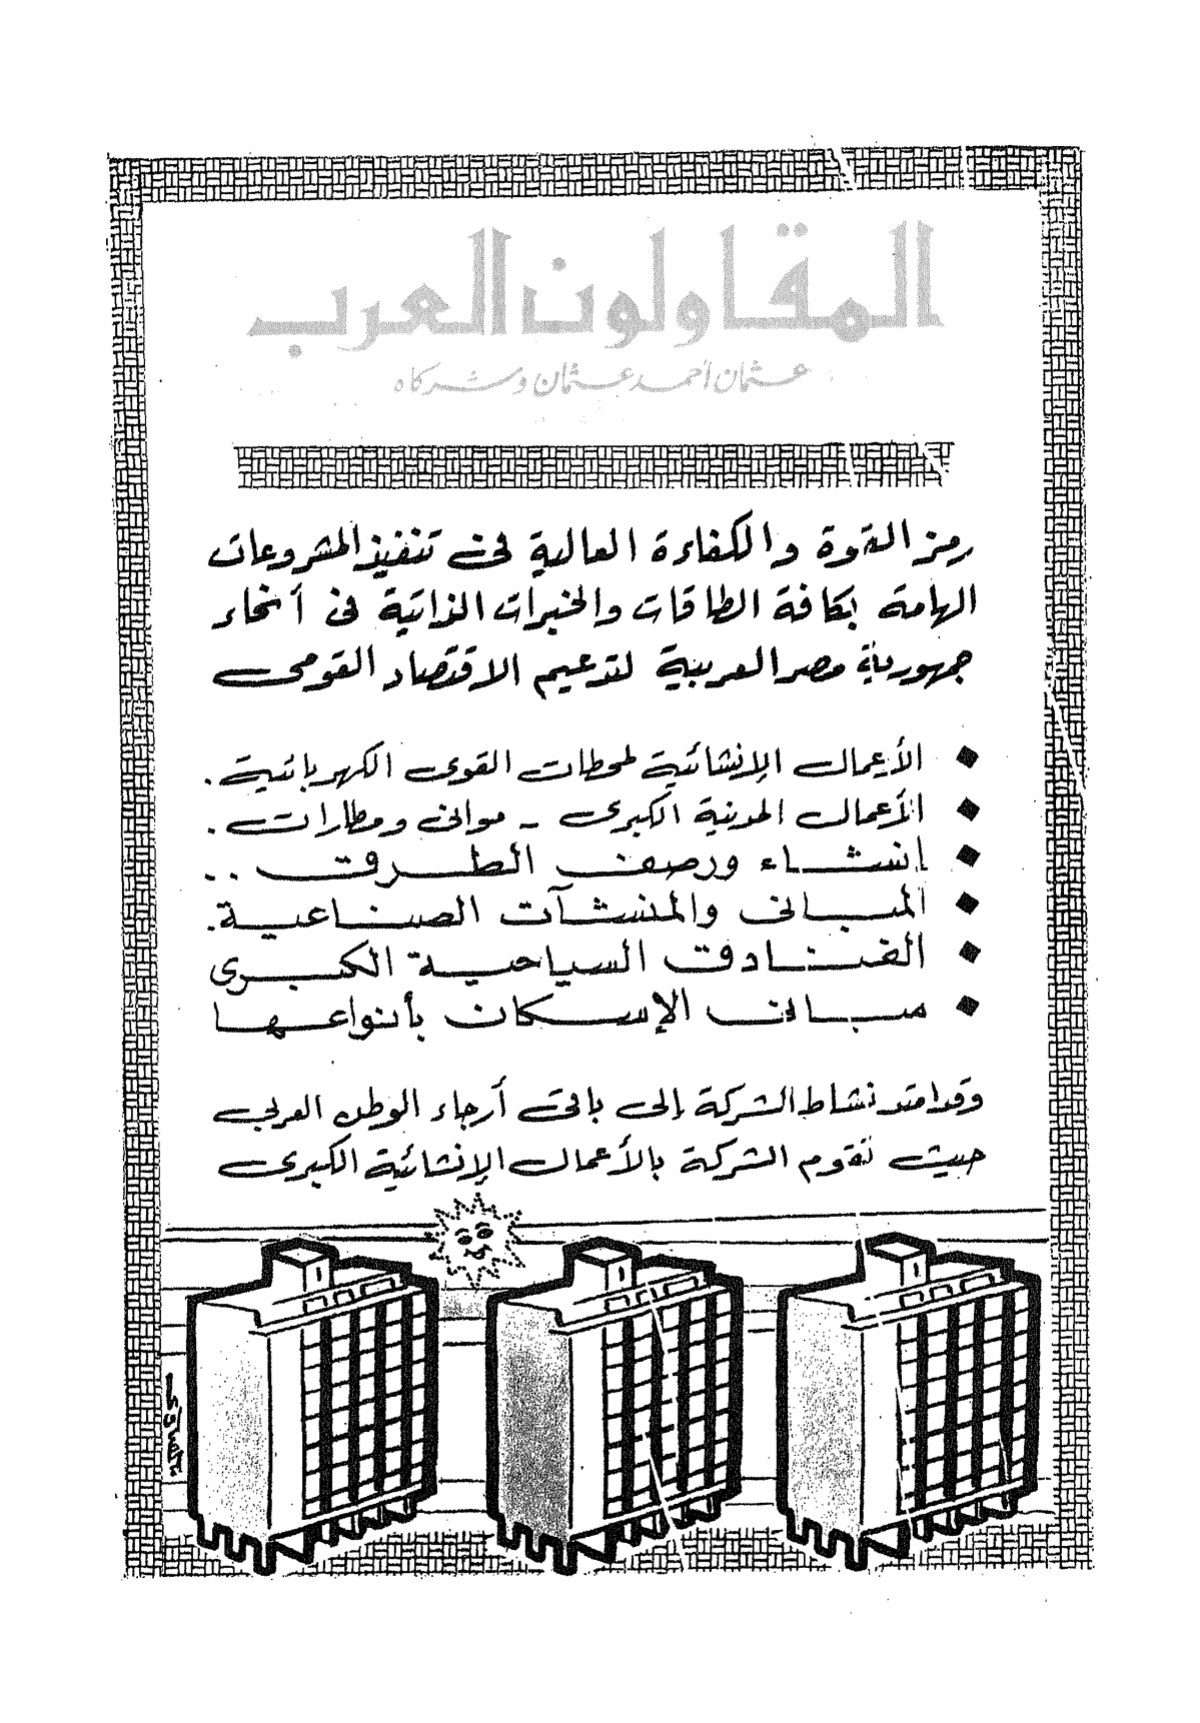 المقاولون العرب
عثمان أحمد عثمان وشركاه
رمز القوة والكفاءة العالية فى تنفيذ المشروعات
الهامة بكافة الطاقات والخبرات الذاتية فى أنحاء
جمهورية مصر العربية لتدعيم الاقتصاد القومى
◆ الأعمال الإنشائية لمحطات القوى الكهربائية .
◆ الأعمال المدنية الكبرى - موانى ومطارات .
◆ إنشاء ورصف الطرق ..
◆ المبانى والمنشآت الصناعية .
◆ الفنادق السياحية الكبرى
◆ مبانى الإسكان بأنواعها
وقد امتد نشاط الشركة إلى باقى أرجاء الوطن العربى
حيث تقوم الشركة بالأعمال الإنشائية الكبرى